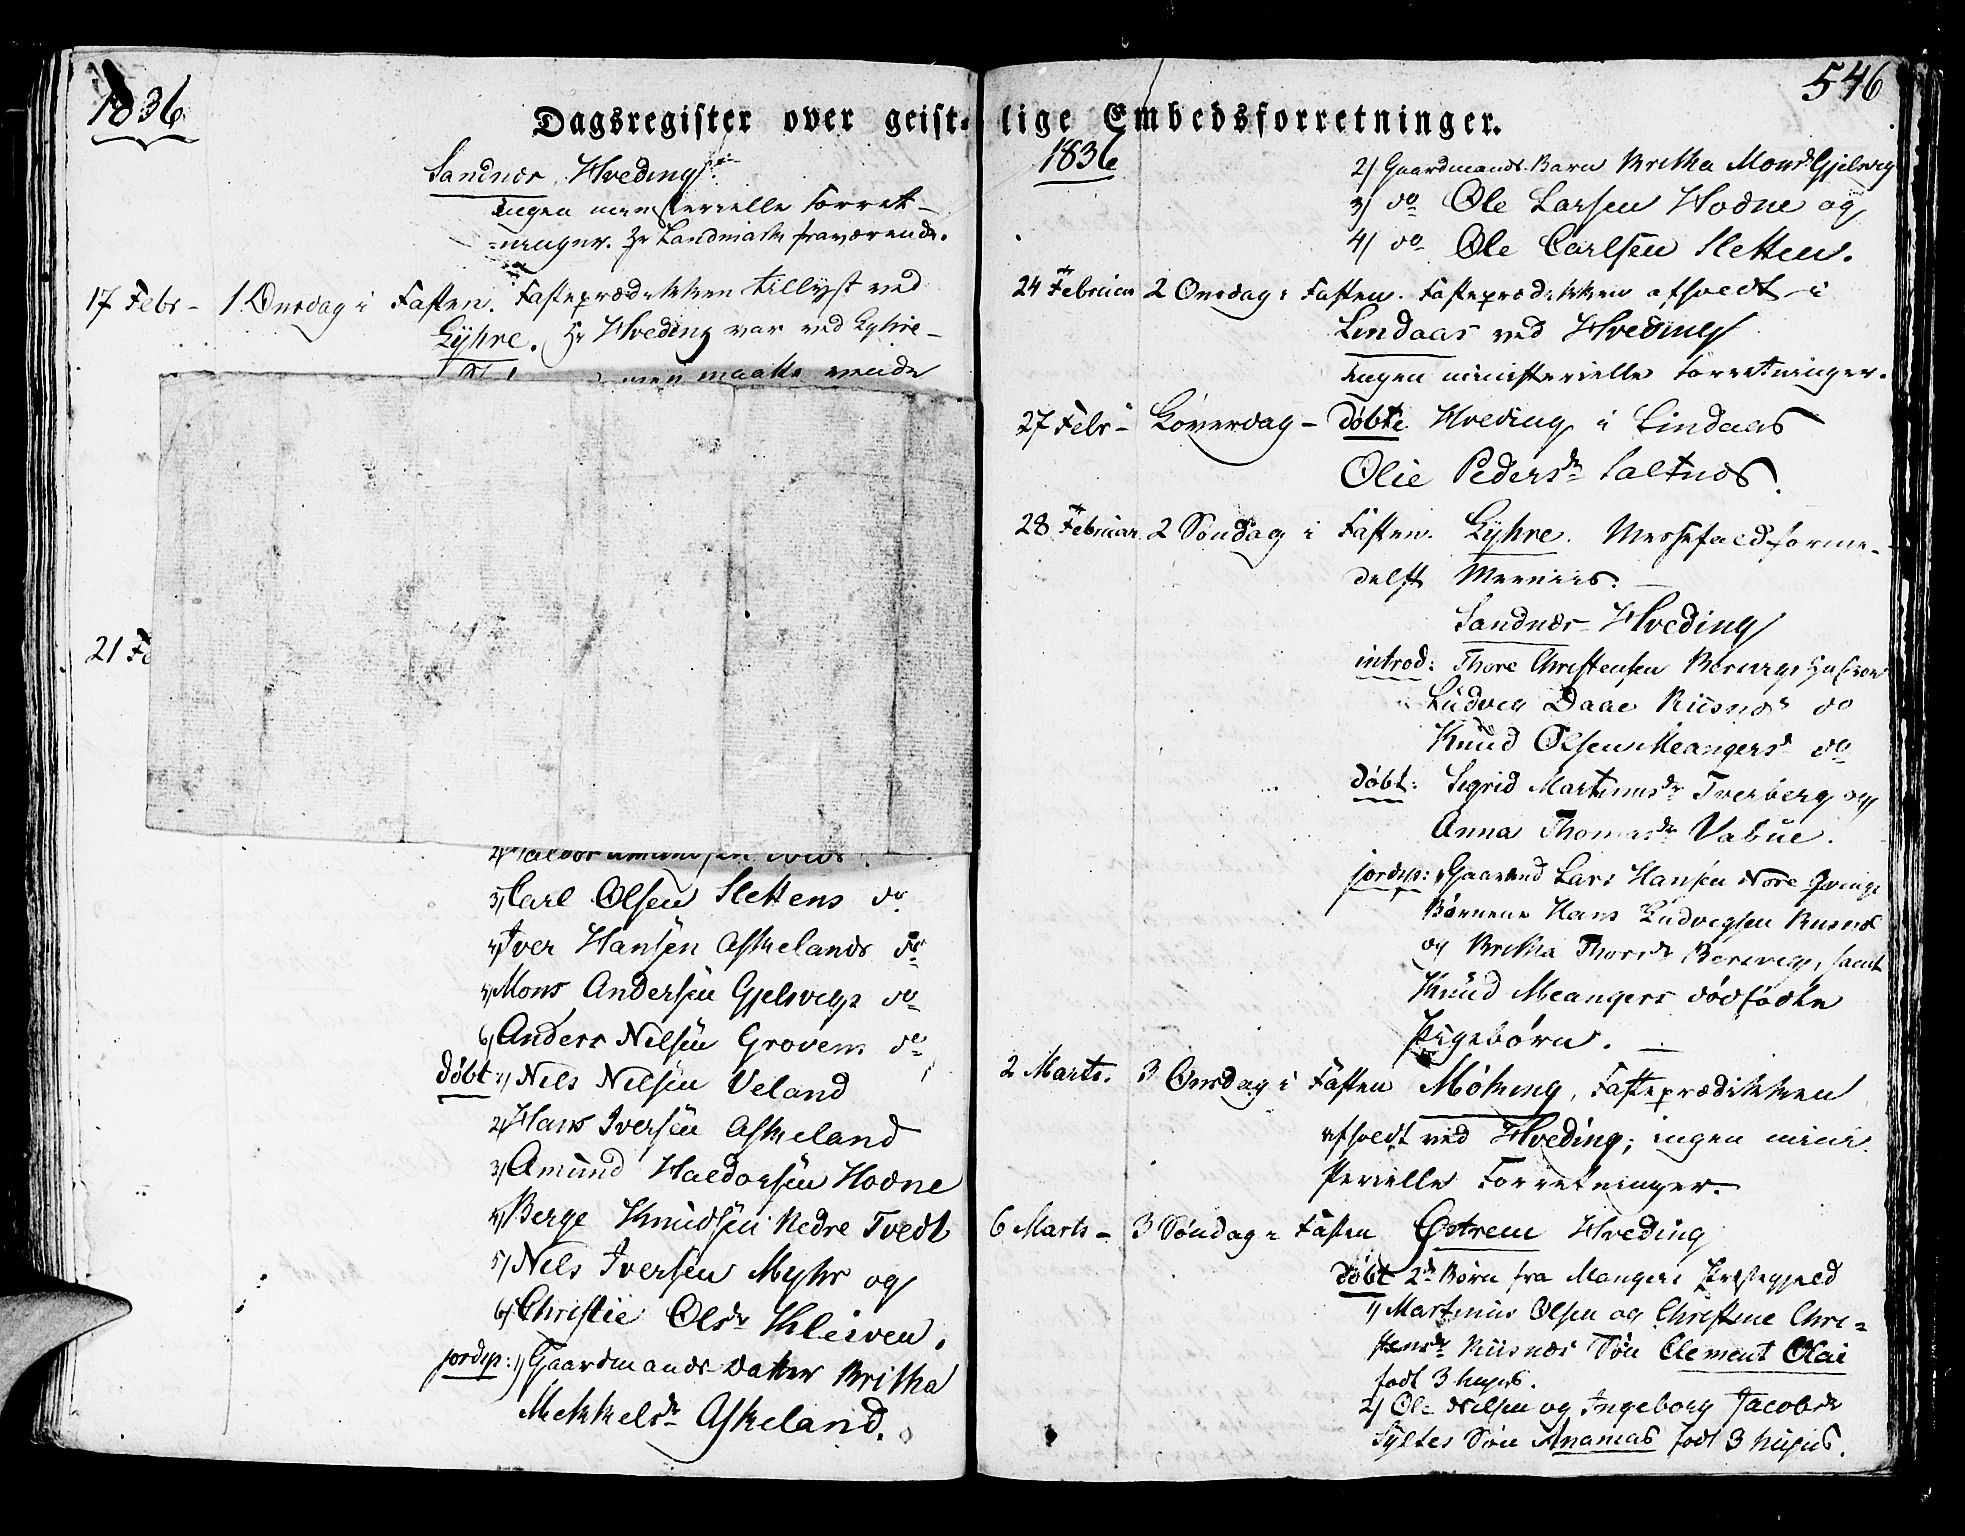 1836
Dagsregister over geist-
Sandnæs. Hveding
Ingen ministerielle Forret-
-ninger. Hr Landmark fraværende.
17 Febr - 1 Onsdag i Fasten. Fasteprædikken tillyst ved
Gyhre. Hr Hveding var ved Gyhre-
men maatte vende
21 Fe
2) Haldor Amundsen
3) Carl Olsen Slettens do
4) Iver Hansen Askelands do
5) Mons Andersen Gjelsvigs do
6) Anders Nilsen Grovens do
döbt: 1) Nils Nilsen Veland
2) Hans Iversen Askeland
3) Amund Haldorsen Hodne
4) Berge Knudsen Nedre Tvedt
5) Nils Iversen Myhr og
6) Christie Olsdr Kleiven.
jordsp: 1) Gaardmands datter Britha
Mekkelsdr Askeland.
546
lige Embedsforretninger.
1836
2) Gaardmands Barn Britha Monsdr Gjelsvig
3) do Ole Larsen Hodne og
4) do Ole Carlsen Sletten.
24 Februar 2 Onsdag i Fasten. Fasteprædikken afholdt i
Lindaas ved Hveding
Ingen ministerielle Forretninger.
27 Febr - Löverdag - döbte Hveding i Lindaas
Olie Pedersdr Saltnæs.
28 Februar 2 Söndag i Fasten. Gyhre. Messefald forme-
delst Meeniis.
Sandnæs - Hveding
introd: Thore Christensen Hustroe
Ludvig Daae Riisnæs do
Knud Olsen Meangers do
döbt: Sigrid Martinusdr Tverberg og
Anna Thomasdr Vabüe.
jordsp: Gaarmd Lars Hansen Nore
Börnene Hans Ludvigsen Riisnæs
og Britha Thoresdr samt
Knud Meangers dödfödte
Pigebörn.
2 Marts. 3 Onsdag i Fasten Möhing, Fasteprædikken
afholdt ved Hveding; ingen mini
sterielle Forretninger.
6 Marts - 3 Söndag i Fasten Östrem Hveding
döbt 2de Börn fra Mangers Præstegjeld
1) Martinus Olsen og Christine Chri-
stensdr Riisnæs Sön Clement Olai
födt 3 hujus.
2) Ole Nilsen og Ingeborg Jacobsdr
Syltes Sön Ananias födt 3 hujus.